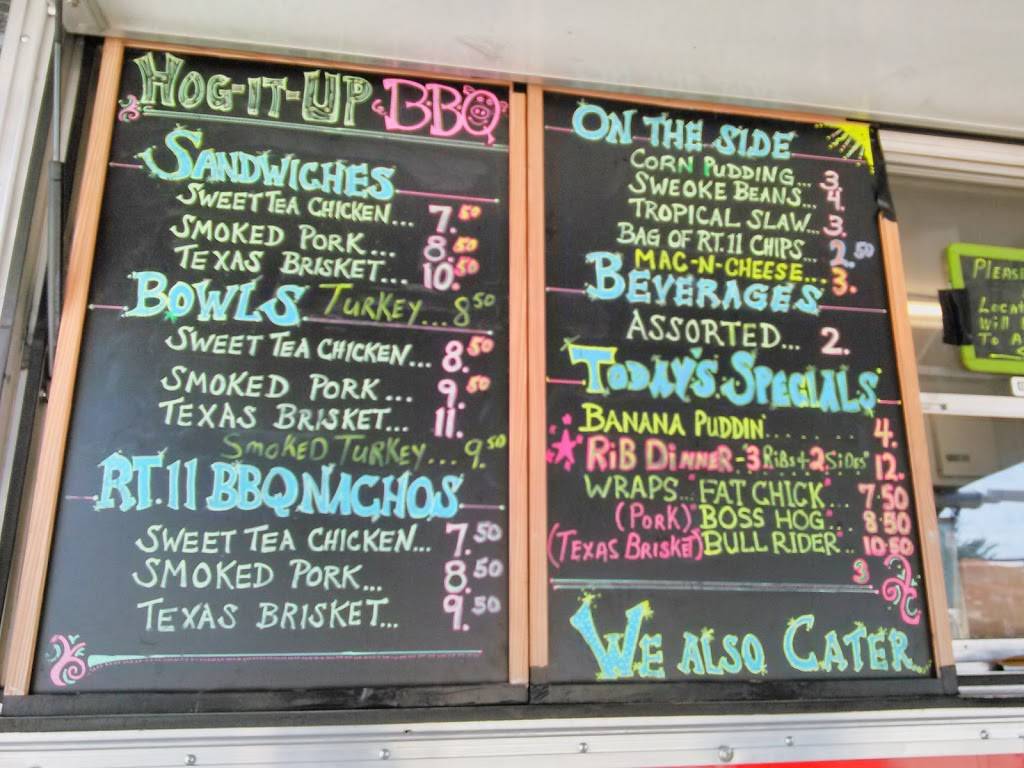 HOG-IT-UP BBQ
SANDWICHES
SWEET TEA CHICKEN... 7.50
SMOKED PORK... 8.50
TEXAS BRISKET... 10.50
TURKEY... 8.50
BOWLS
SWEET TEA CHICKEN... 8.50
SMOKED PORK... 9.50
TEXAS BRISKET... 11.
SMOKED TURKEY... 9.50
RT. 11 BBQ NACHOS
SWEET TEA CHICKEN... 7.50
SMOKED PORK... 8.50
TEXAS BRISKET... 9.50
ON THE SIDE
CORN PUDDING... 3.
SWEOKE BEANS... 4.
TROPICAL SLAW... 3.
BAG OF RT. 11 CHIPS... 2.50
MAC-N-CHEESE... 3.
BEVERAGES
ASSORTED... 2.
TODAY'S SPECIALS
BANANA PUDDIN'...... 4.
RIB DINNER - 3 RIBS + 2 SIDES 12.
WRAPS.. "FAT CHICK" 7.50
(PORK) "BOSS HOG".. 8.50
(TEXAS BRISKET) "BULL RIDER".. 10.50
WE ALSO CATER
PLEASE
Will
To